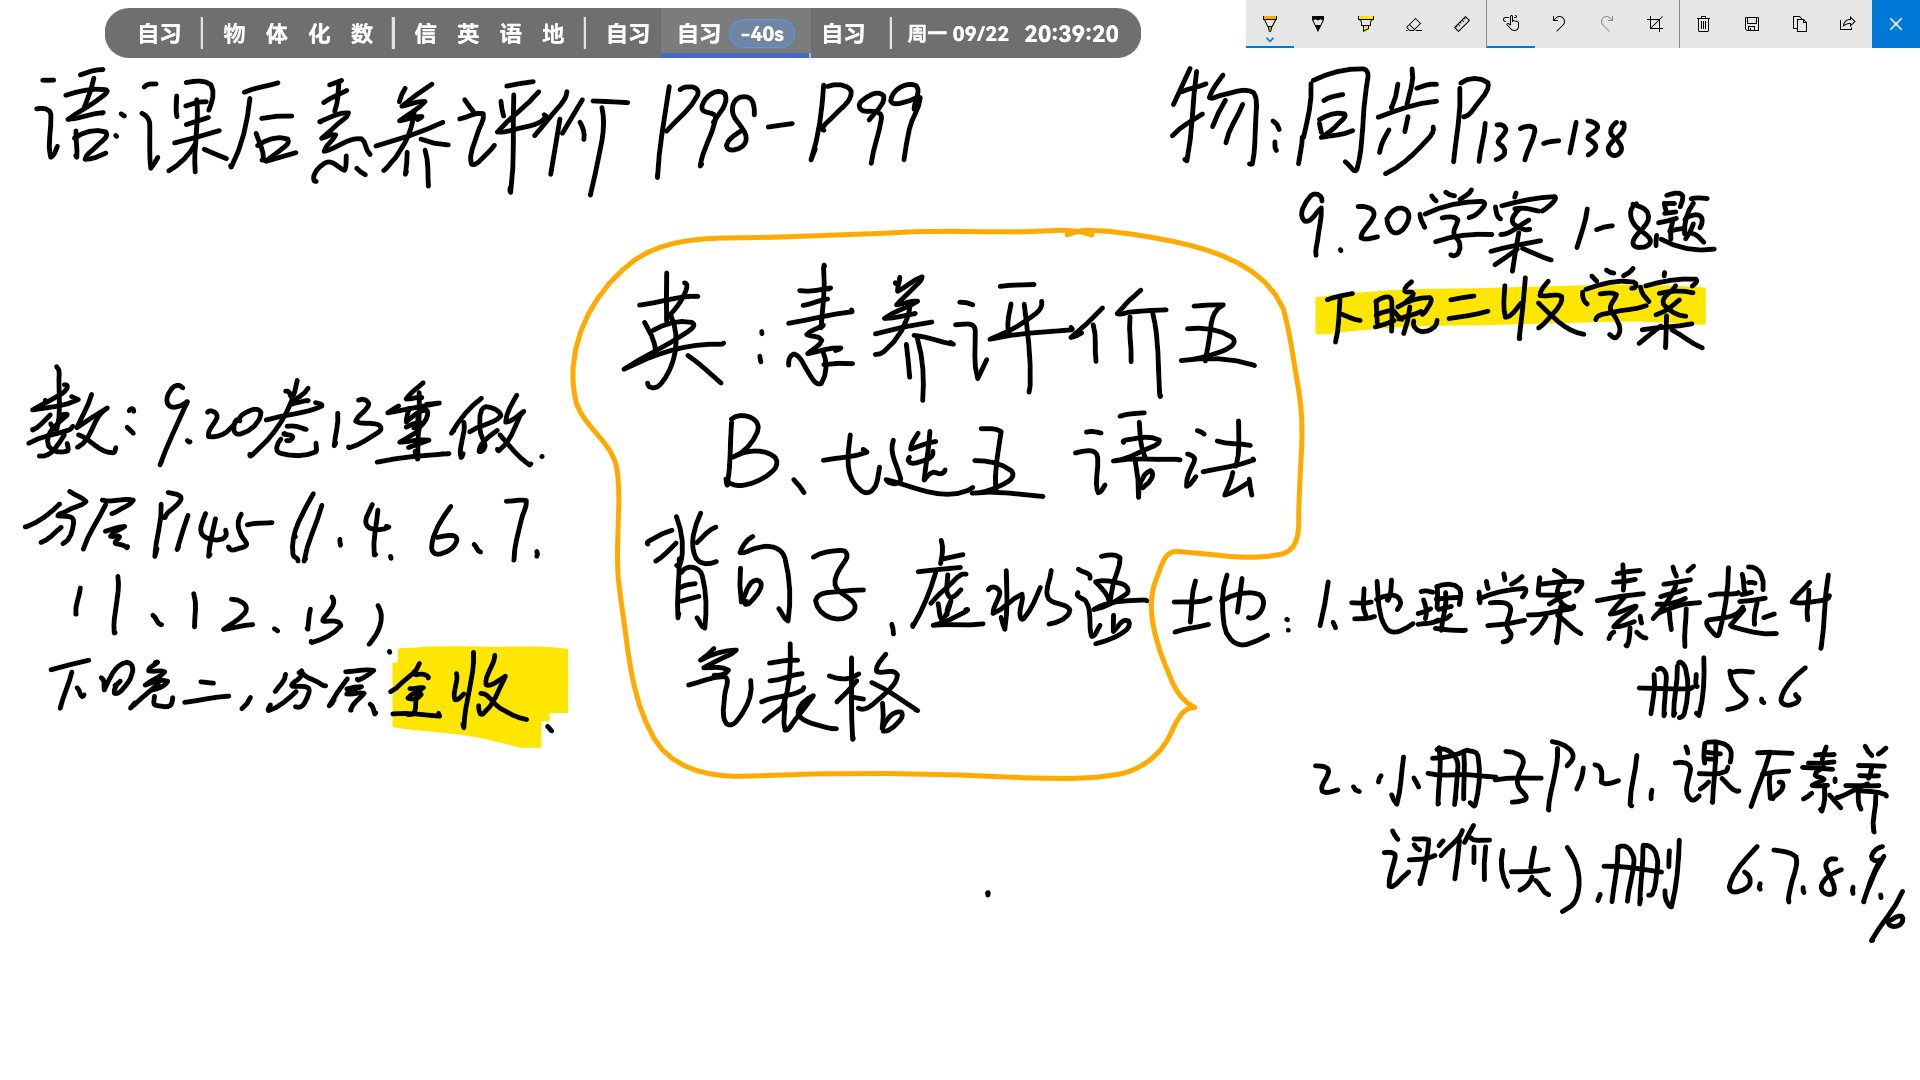 自习 | 物 体 化 数 | 信 英 语 地 | 自习 自习 -40s 自习 | 周一 09/22 20:39:20
语:课后素养评价 P98-P99
物:同步P137-138
9.20学案 1-8题
下晚二收学案
英:素养评价五
B、七选五 语法
背句子、虚拟语
气表格
数:9.20卷13重做.
分层P145-(1.4.6、7.
11、12、13).
下晚二,分层全收、
地:1.地理学案素养提升
删5.6
2、小册子P121,课后素养
评价(六),删 6.7.8.9.10